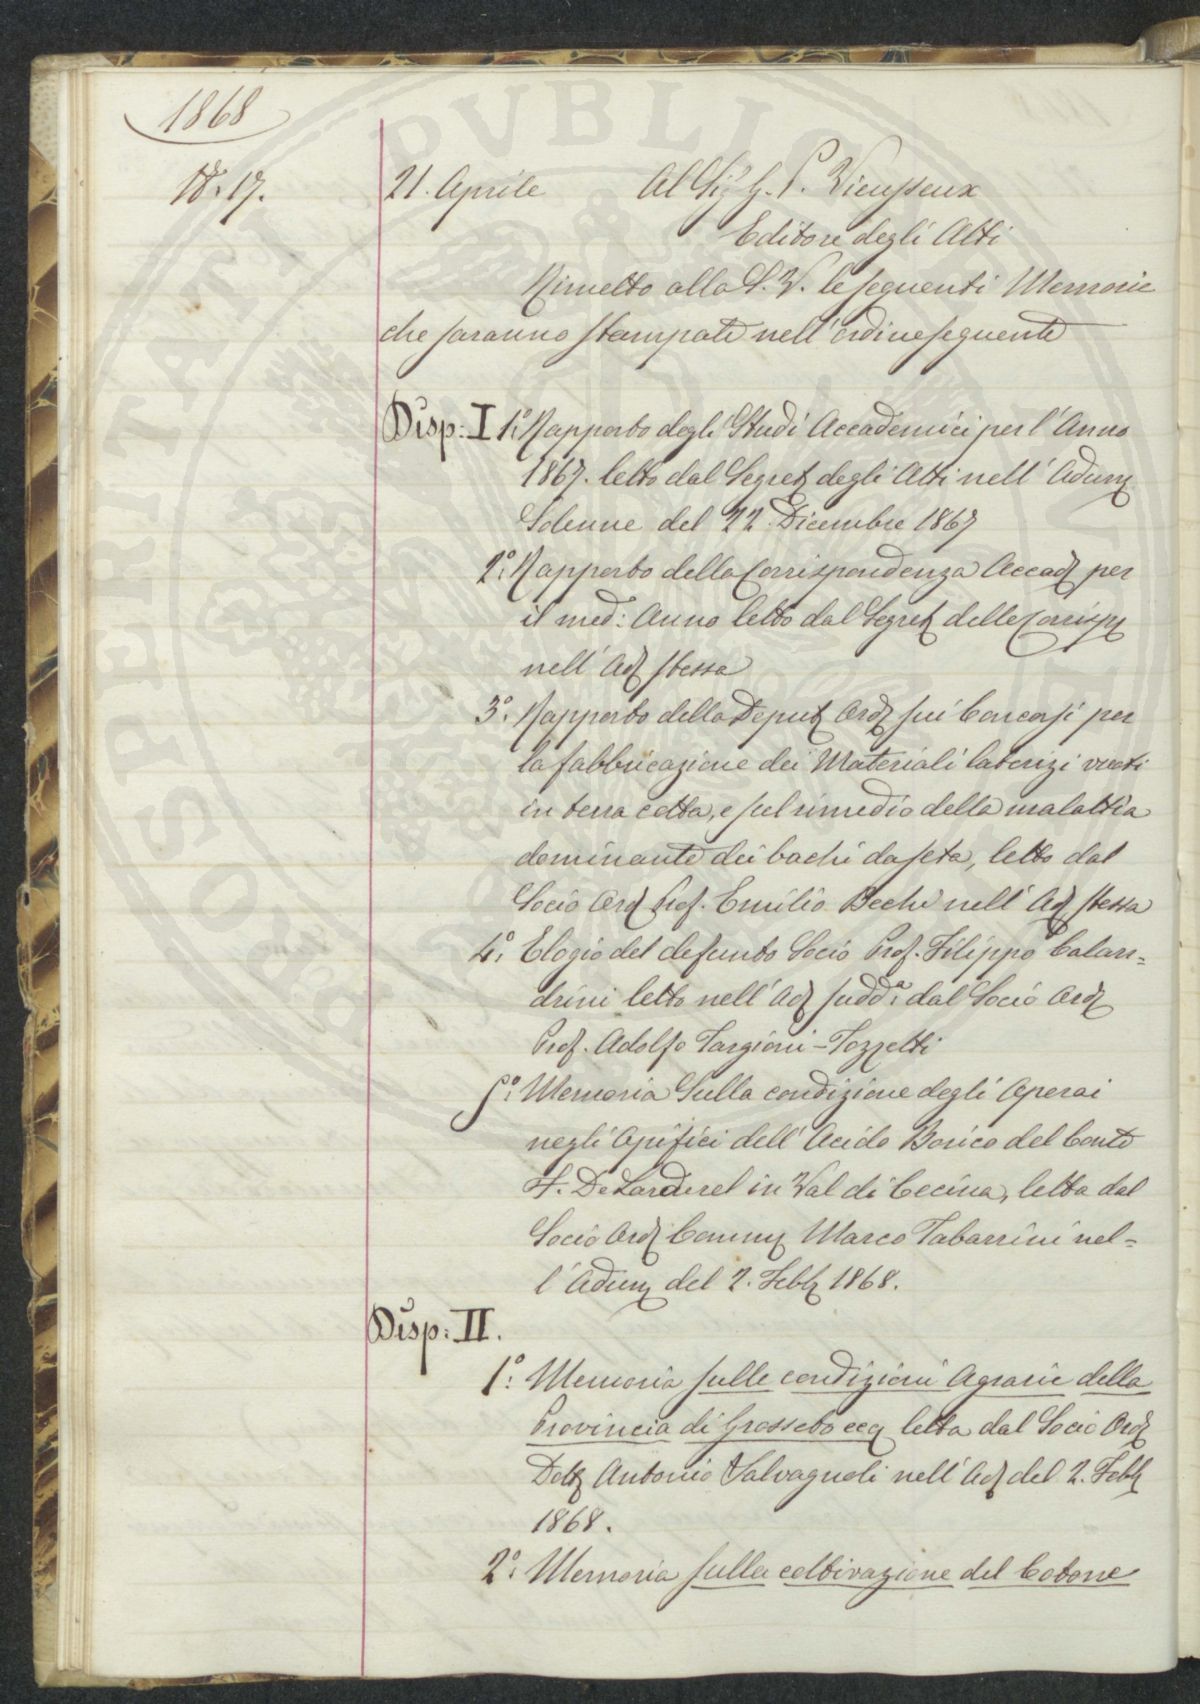 1868
N. 17.
21. Aprile Al Sig. G. P. Vieusseux
Editore degli Atti
Rimetto alla S. V. le seguenti Memorie
che saranno stampate nell'ordine seguente
Disp: I 1.° Rapporto degli Studi Accademici per l'Anno
1867. letto dal Segret. degli Atti nell'Adun.
Solenne del 22 Dicembre 1867
2.° Rapporto della Corrispondenza Accad. per
il med: Anno letto dal Segret. delle Corrisp.
nell'Ad. stessa
3.° Rapporto della Deput. Ord. sui Concorsi per
la fabbricazione dei Materiali laterizi vuoti
in terra cotta, e sul rimedio della malattia
dominante dei bachi da seta, letto dal
Socio Ord. Prof. Emilio Bechi nell'Ad. stessa
4.° Elogio del defunto Socio Prof. Filippo Calan=
drini letto nell'Ad. sudd.a dal Socio Ord.
Prof. Adolfo Targioni-Tozzetti
5.° Memoria Sulla condizione degli Operai
negli Opifici dell'Acido Borico del Conte
F. De Larderel in Val di Cecina, letta dal
Socio Ord. Comm. Marco Tabarrini nel=
l'Adun. del 2. Febb. 1868.
Disp: II.
1.° Memoria sulle condizioni Agrarie della
Provincia di Grosseto ecc. letta dal Socio Ord.
Dott. Antonio Salvagnoli nell'Ad. del 2. Febb.
1868.
2.° Memoria sulla coltivazione del Cotone
PROSPERITATI PUBLICAE